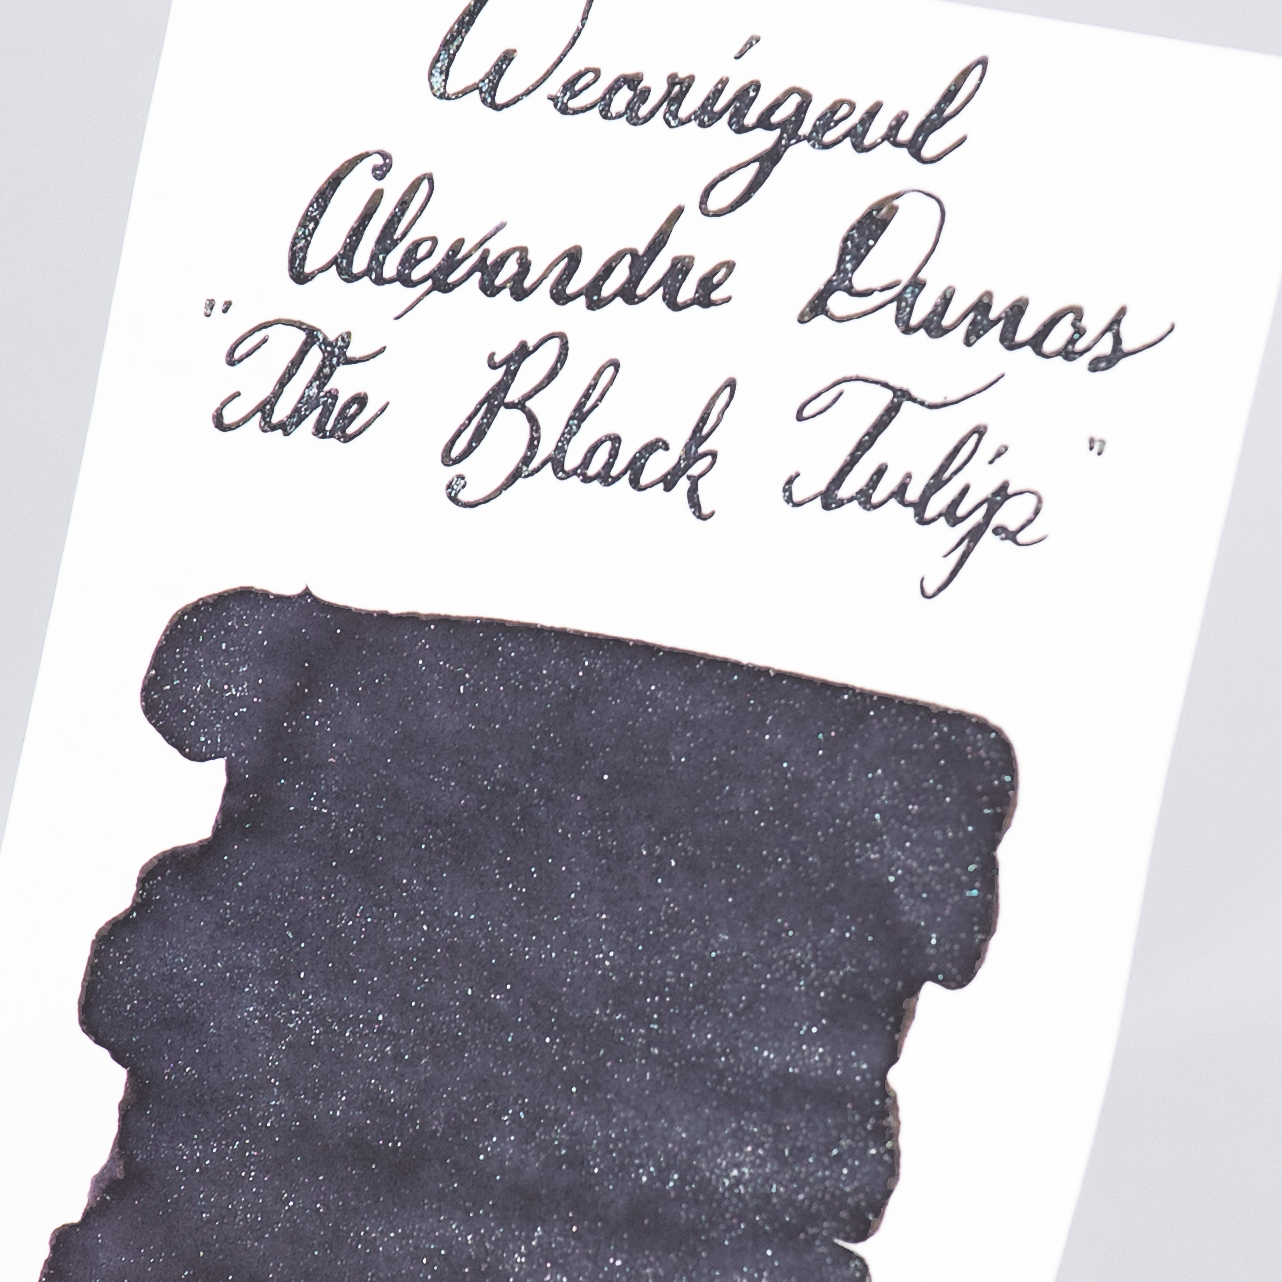 Wearingeul
Alexandre Dumas
"The Black Tulip"